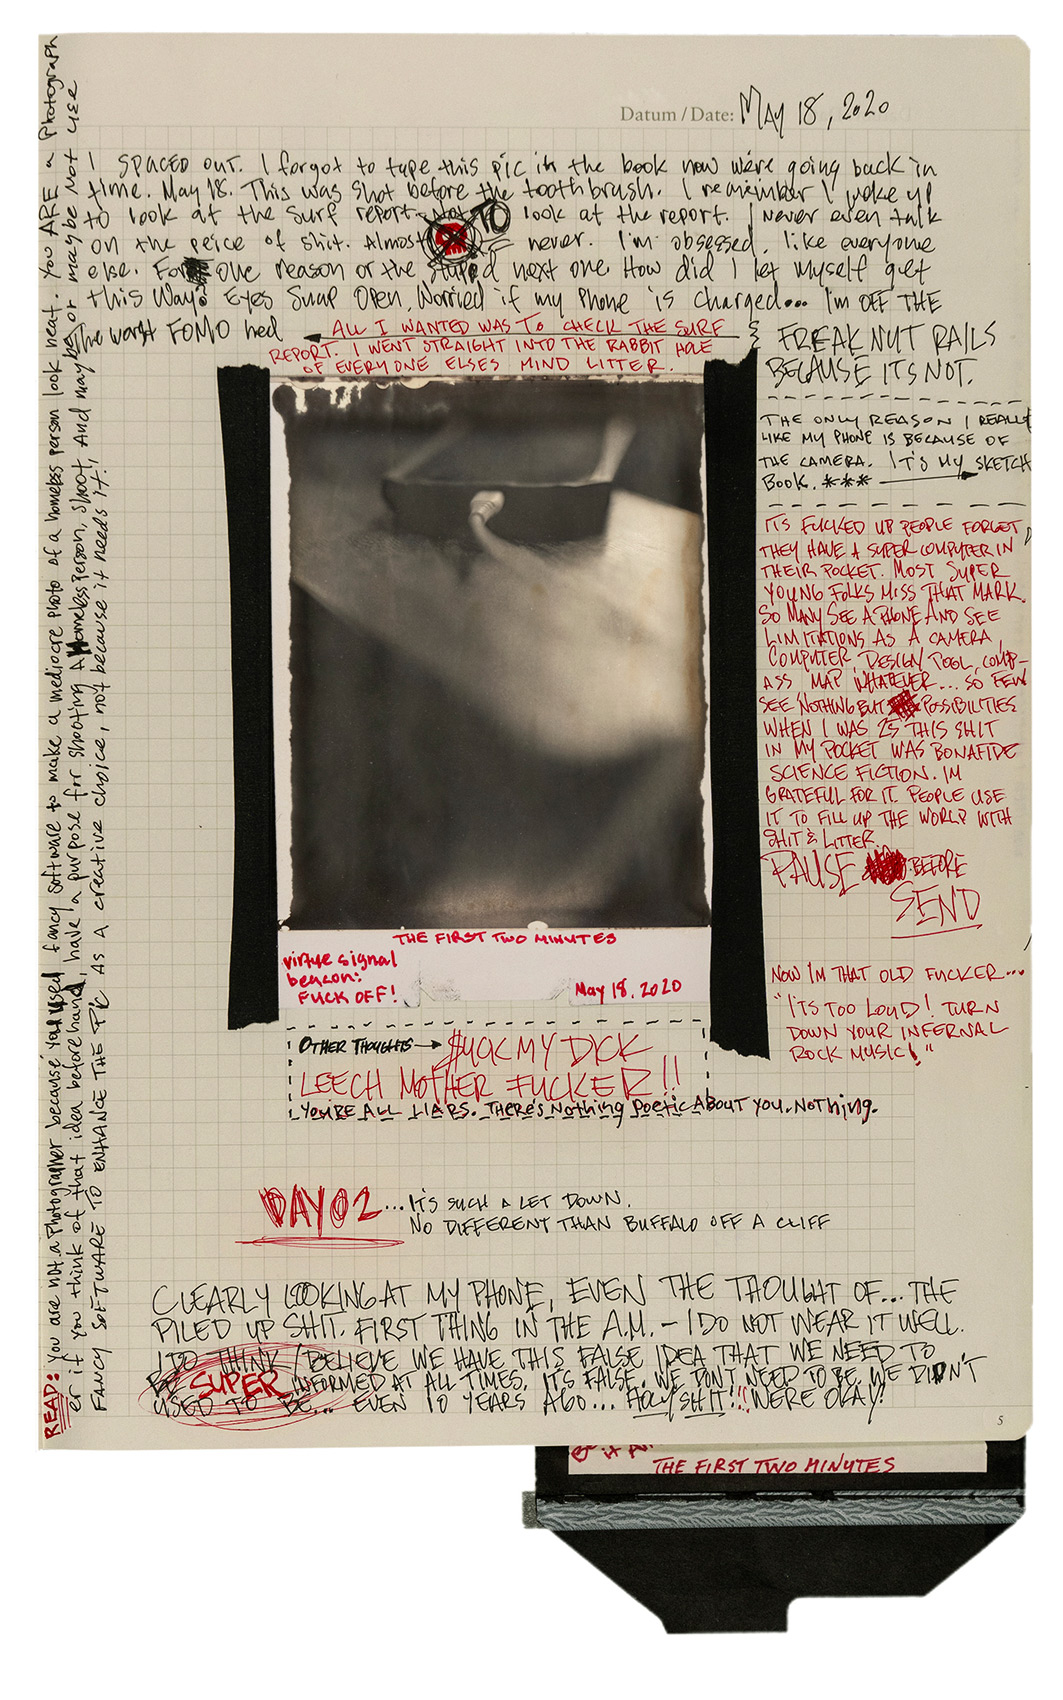 Datum / Date: MAY 18, 2020
I SPACED OUT. I forgot to tape this pic in the book now we're going back in
time. May 18. This was shot before the toothbrush. I remember I woke up
to look at the surf report. Not TO look at the report. I never even talk
on the peice of shit. Almost never. I'm obsessed, like everyone
else. For one reason or the stupid next one. How did I let myself get
this way? Eyes Snap Open, Worried if my phone is charged... I'm OFF THE
The worst FOMO
FREAK NUT RAILS
BECAUSE ITS NOT.
ALL I WANTED WAS TO CHECK THE SURF
REPORT. I WENT STRAIGHT INTO THE RABBIT HOLE
OF EVERYONE ELSES MIND LITTER.
THE ONLY REASON I REALLY
LIKE MY PHONE IS BECAUSE OF
THE CAMERA. IT'S MY SKETCH
BOOK. ***
ITS FUCKED UP PEOPLE FORGET
THEY HAVE A SUPER COMPUTER IN
THEIR POCKET. MOST SUPER
YOUNG FOLKS MISS THAT MARK.
SO MANY SEE A PHONE AND SEE
LIMITATIONS AS A CAMERA,
COMPUTER, DESIGN TOOL, COMP-
ASS MAP WHATEVER... SO FEW
SEE NOTHING BUT POSSIBILITIES
WHEN I WAS 25 THIS SHIT
IN MY POCKET WAS BONAFIDE
SCIENCE FICTION. IM
GRATEFUL FOR IT. PEOPLE USE
IT TO FILL UP THE WORLD WITH
SHIT & LITTER.
PAUSE BEFORE
SEND
NOW I'M THAT OLD FUCKER...
"ITS TOO LOUD! TURN
DOWN YOUR INFERNAL
ROCK MUSIC!"
THE FIRST TWO MINUTES
virtue signal
beacon:
FUCK OFF!
May 18, 2020
OTHER THOUGHTS → $UCK MY DICK
LEECH MOTHER FUCKER!!
YOU'RE ALL LIARS. THERE'S NOTHING POETIC ABOUT YOU. NOTHING.
DAY 02 ... IT'S SUCH A LET DOWN.
NO DIFFERENT THAN BUFFALO OFF A CLIFF
CLEARLY LOOKING AT MY PHONE, EVEN THE THOUGHT OF... THE
PILED UP SHIT. FIRST THING IN THE A.M. - I DO NOT WEAR IT WELL.
I DO THINK / BELIEVE WE HAVE THIS FALSE IDEA THAT WE NEED TO
BE SUPER INFORMED AT ALL TIMES. ITS FALSE. WE DON'T NEED TO BE. WE DIDN'T
USED TO BE... EVEN 10 YEARS AGO... HOLY SHIT!!! WERE OKAY!
READ: You are not a Photographer because you used fancy software to make a mediocre photo of a homeless person look neat. You ARE a Photograph
er if you think of that idea beforehand, have a purpose for shooting a Homeless person, shoot, And maybe or maybe Not use
FANCY SOFTWARE TO ENHANCE THE PIC AS A creative choice, not because it needs it!
5
THE FIRST TWO MINUTES